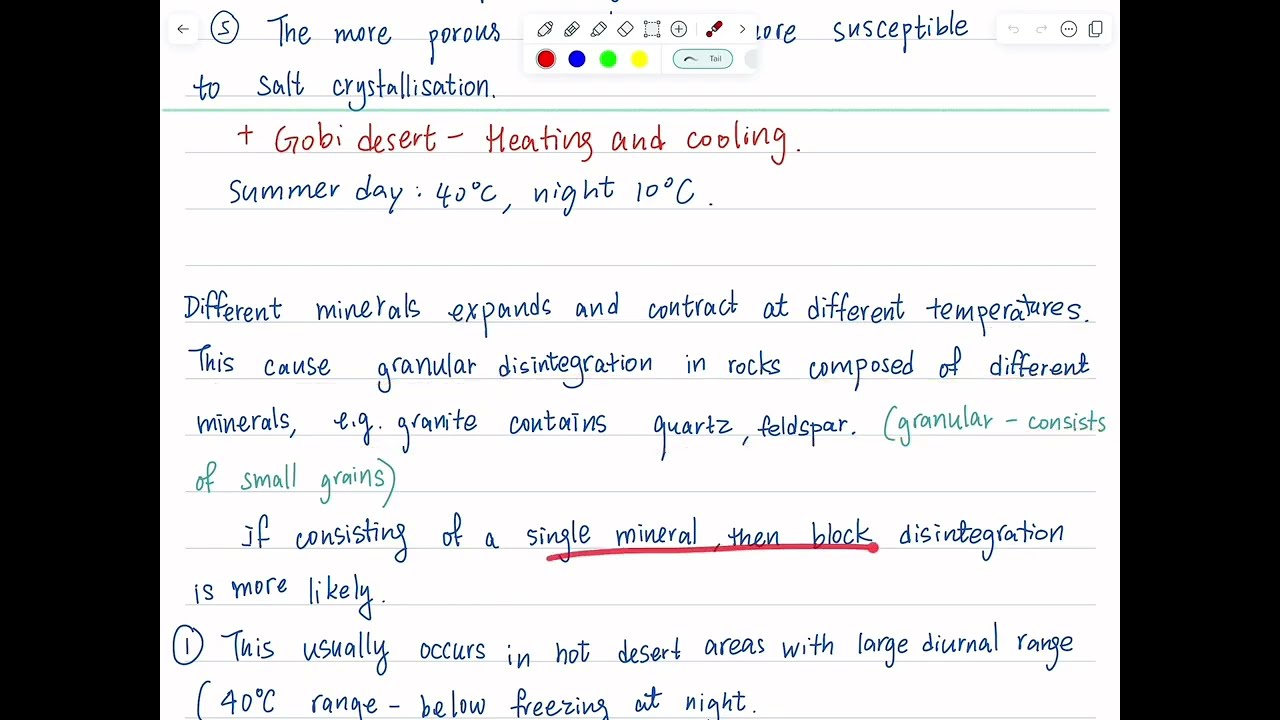 ⑤ The more porous more susceptible
Tail
to salt crystallisation.
+ Gobi desert - Heating and cooling.
Summer day: 40°C, night 10°C.
Different minerals expands and contract at different temperatures.
This cause granular disintegration in rocks composed of different
minerals, e.g. granite contains quartz, feldspar. (granular - consists
of small grains)
if consisting of a single mineral, then block disintegration
is more likely.
① This usually occurs in hot desert areas with large diurnal range
(40°C range - below freezing at night.